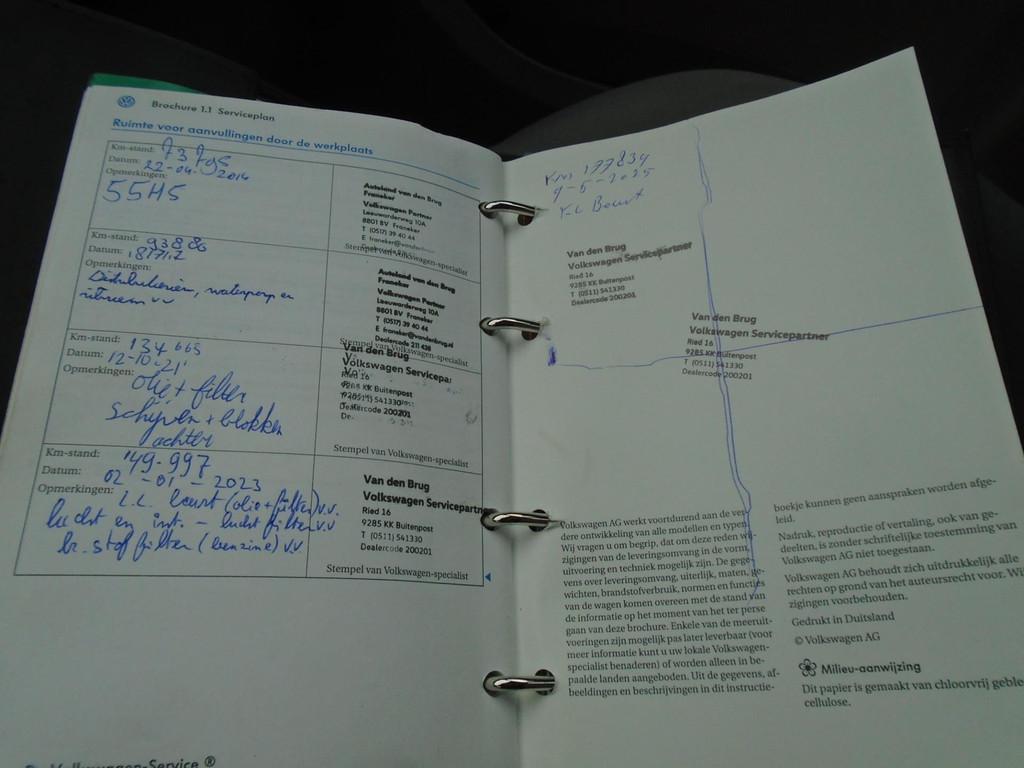 Brochure 1.1 Serviceplan
Ruimte voor aanvullingen door de werkplaats
Km-stand: 73795
Datum: 22-04-2014
Opmerkingen:
55HS
Autoland van den Brug
Franeker
Volkswagen Partner
Leeuwarderweg 10A
8801 BV Franeker
T (0517) 39 40 44
E franeker@vandenbrug
Stempel van Volkswagen-specialist
Km-stand: 93886
Datum: 18/7/12
Opmerkingen:
Distributieriem, waterpomp en
vv
Autoland van den Brug
Franeker
Volkswagen Partner
Leeuwarderweg 10A
8801 BV Franeker
T (0517) 39 40 44
E franeker@vandenbrug.nl
Dealercode 211 438
Stempel van Volkswagen-specialist
Km-stand: 134 665
Datum: 12-10-21
Opmerkingen:
olie + filter
Schijven + blokken
achter
Van den Brug
Volkswagen Servicepar
Ried 16
9285 KK Buitenpost
T (0511) 541330
Dealercode 200201
Stempel van Volkswagen-specialist
Km-stand: 149-997
Datum: 02-01-2023
Opmerkingen: I.L. beurt (olie + filter) v.v.
lucht en int. - lucht filter v.v
br. stof filter (benzine) v.v
Van den Brug
Volkswagen Servicepartner
Ried 16
9285 KK Buitenpost
T (0511) 541330
Dealercode 200201
Stempel van Volkswagen-specialist
Volkswagen-Service ®
Km 177834
9-5-2025
Beurt
Van den Brug
Volkswagen Servicepartner
Ried 16
9285 KK Buitenpost
T (0511) 541330
Dealercode 200201
Van den Brug
Volkswagen Servicepartner
Ried 16
9285 KK Buitenpost
T (0511) 541330
Dealercode 200201
Volkswagen AG werkt voortdurend aan de ver-
dere ontwikkeling van alle modellen en typen.
Wij vragen u om begrip, dat om deze reden wij-
zigingen van de leveringsomvang in de vorm,
uitvoering en techniek mogelijk zijn. De gege-
vens over leveringsomvang, uiterlijk, maten, ge-
wichten, brandstofverbruik, normen en functies
van de wagen komen overeen met de stand van
de informatie op het moment van het ter perse
gaan van deze brochure. Enkele van de meeruit-
voeringen zijn mogelijk pas later leverbaar (voor
meer informatie kunt u uw lokale Volkswagen-
specialist benaderen) of worden alleen in be-
paalde landen aangeboden. Uit de gegevens, af-
beeldingen en beschrijvingen in dit instructie-
boekje kunnen geen aanspraken worden afge-
leid.
Nadruk, reproductie of vertaling, ook van ge-
deelten, is zonder schriftelijke toestemming van
Volkswagen AG niet toegestaan.
Volkswagen AG behoudt zich uitdrukkelijk alle
rechten op grond van het auteursrecht voor. Wij
zigingen voorbehouden.
Gedrukt in Duitsland
© Volkswagen AG
Milieu-aanwijzing
Dit papier is gemaakt van chloorvrij geble
cellulose.